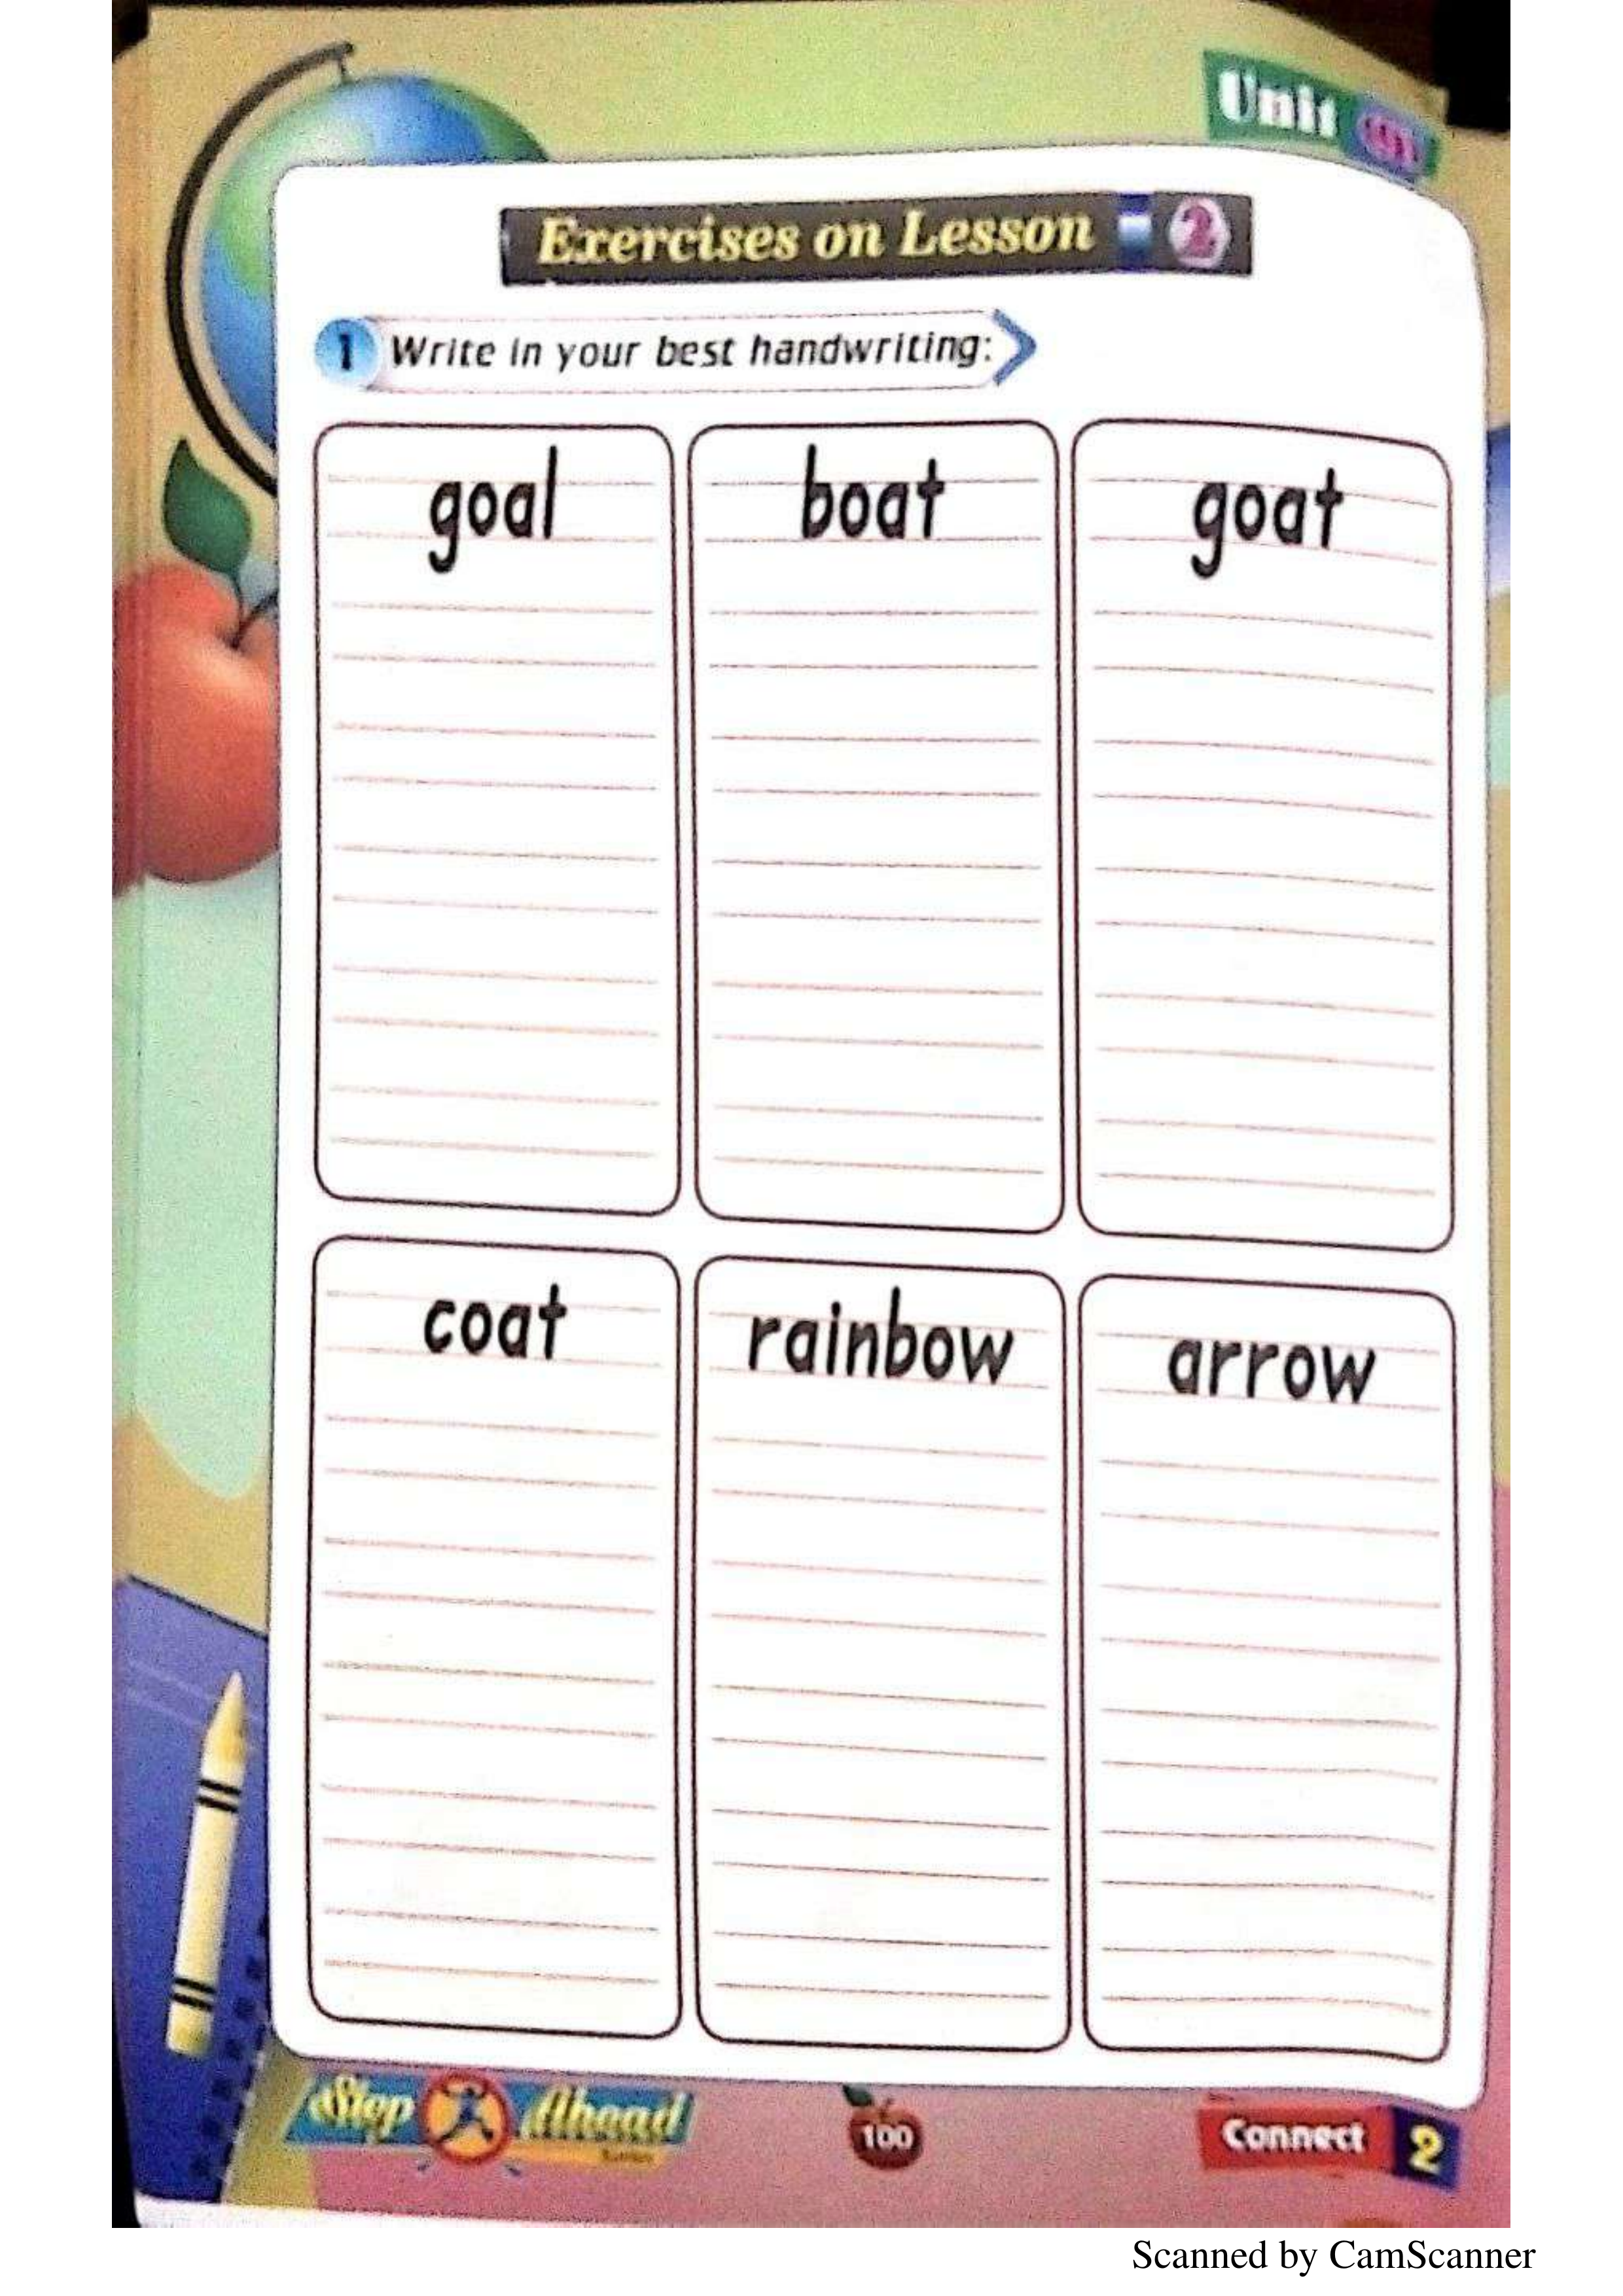 Unit
Exercises on Lesson 2
1 Write in your best handwriting:
goal boat goat
coat rainbow arrow
Step Ahead
100
Connect 2
Scanned by CamScanner